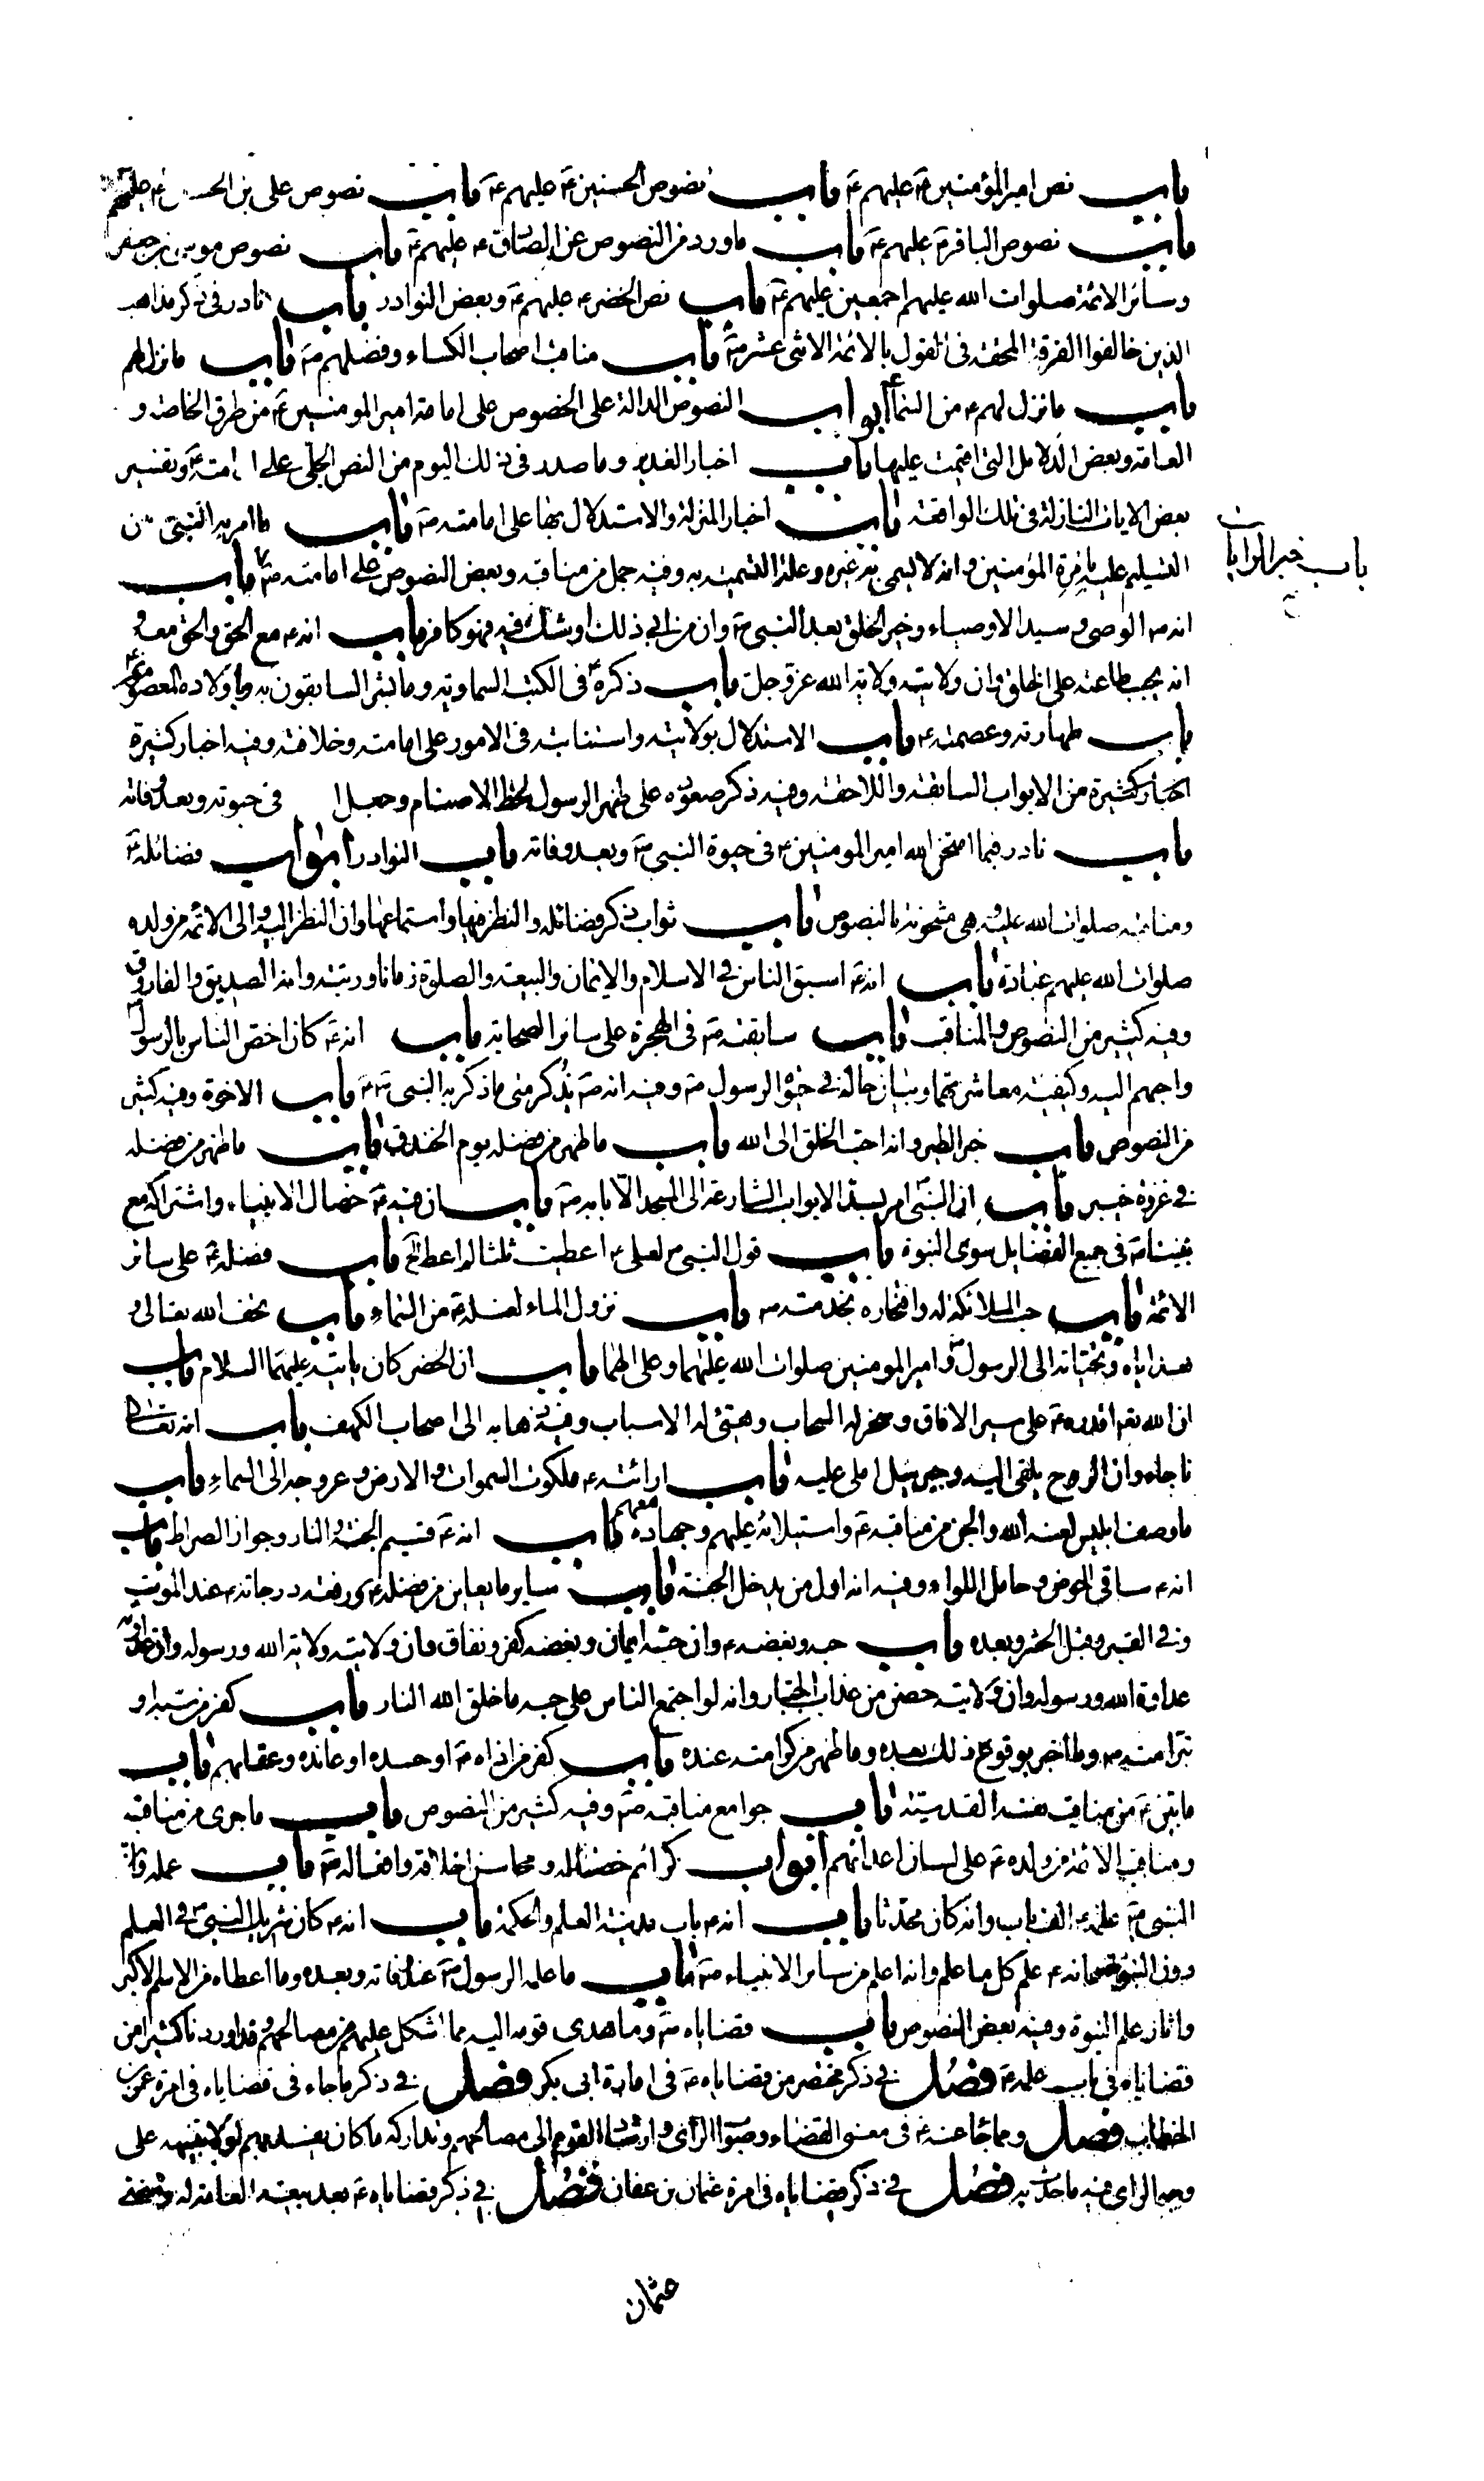 باب نص امير المؤمنين عليهم باب نصوص الحسنين عليهم باب نصوص على بن الحسين عليهم
باب نصوص الباقر عليهم باب ما ورد من النصوص عن الصادق عليهم باب نصوص موسى بن جعفر
وسائر الائمة صلوات الله عليهم اجمعين عليهم باب نص الخضر عليهم وبعض النوادر باب نادر فى ذكر مذاهب
الذين خالفوا الفرقة المحقة فى القول بالائمة الاثنى عشر باب مناقب اصحاب الكساء وفضلهم باب ما نزل لهم
باب ما نزل لهم من السماء ابواب النصوص الدالة على الخصوص على امامة امير المومنين من طرق الخاصة و
العامة وبعض الدلائل التى اقيمت عليها باب اخبار الغدير وما صدر فى ذلك اليوم من النص الجلى على امامته وتفسير
بعض الايات النازلة فى تلك الواقعة باب اخبار المنزلة والاستدلال بها على امامته باب ما امر به النبى من
التسليم عليه بامرة المؤمنين وانه لا يسمى به غيره وعلة التسمية به وفيه جمل من مناقبه وبعض النصوص على امامته باب
باب خبر الرايات
انه الوصى وسيد الاوصياء وخير الخلق بعد النبى وان من ابى ذلك او شك فيه فهو كافر باب انه مع الحق والحق معه و
انه يجب طاعته على الخلق وان ولايته ولاية الله عز وجل باب ذكره فى الكتب السماوية وما بشر السابقون به وباولاده المعصومين
باب طهارته وعصمته باب الاستدلال بولايته واستنابته فى الامور على امامته وخلافته وفيه اخبار كثيرة
اخبار كثيرة من الابواب السابقة واللاحقة وفيه ذكر صعوده على ظهر الرسول لحط الاصنام وجعل فى حيوته وبعد وفاته
باب نادر فيما امتحن الله امير المومنين فى حيوة النبى وبعد وفاته باب النوادر ابواب فضائله
ومناقبه صلوات الله عليه وهى مشحونة بالنصوص باب ثواب ذكر فضائله والنظر فيها واستماعها وان النظر اليه والى الائمة من ولده
صلوات الله عليهم عبادة باب انه اسبق الناس فى الاسلام والايمان والبيعة والصلوة زمانا ورتبة وانه الصديق والفاروق
وفيه كثير من النصوص والمناقب باب سابقته فى الهجرة على سائر الصحابة باب انه كان اخص الناس بالرسول
واحبهم اليه وكيفية معاشرتهما وبيان حاله فى حيوة الرسول وفيه انه يذكر متى ما ذكر به النبى باب الاخوة وفيه كثير
من النصوص باب خبر الطير وانه احب الخلق الى الله باب ما ظهر من فضله يوم الخندق باب ما ظهر من فضله
فى غزوة خيبر باب ان النبى امر بسد الابواب الشارعة الى المسجد الا بابه باب ان فيه خصال الانبياء واشتراكه مع
نبينا فى جميع الفضايل سوى النبوة باب قول النبى لعلى اعطيت ثلثا لم اعط باب فضله على سائر
الائمة باب حب الملائكة له وافتخاره بخدمته باب نزول الماء لغسله من السماء باب تحف الله تعالى و
هداياه وتحياته الى الرسول وامير المومنين صلوات الله عليهما وعلى الهما باب ان الخضر كان ياتيه عليهما السلام باب
ان الله اقدره على سير الافاق وسخر له السحاب وهيئ له الاسباب وفيه ذهابه الى اصحاب الكهف باب ان الله
ناجاه وان الروح يلقى اليه وجبرئيل املى عليه باب ارائته ملكوت السموات والارض وعروجه الى السماء باب
ما وصف ابليس لعنه الله والجن من مناقبه واستيلائه عليهم وجهاده معهم باب انه قسيم الجنة والنار وجواز الصراط باب
انه ساقى الحوض وحامل اللواء وفيه انه اول من يدخل الجنة باب ساير ما يعاين من فضله ورفعة درجاته عند الموت
وفى القبر وقبل الحشر وبعده باب حبه وبغضه وان حبه ايمان وبغضه كفر ونفاق وان ولايته ولاية الله ورسوله وان عداوته
عداوة الله ورسوله وان ولايته حصن من عذاب الجبار وانه لو اجتمع الناس على حبه ما خلق الله النار باب كفر من سبه او
تبرا منه وما اخبر بوقوع ذلك بعده وما ظهر من كرامته عنده باب كفر من اذاه او حسده او عانده وعقابهم باب
ما بين من مناقب نفسه القدسية باب جوامع مناقبه وفيه كثير من النصوص باب ما جرى من مناقبه
ومناقب الائمة من ولده على لسان اعدائهم ابواب كرائم خصائله ومحاسن اخلاقه وافعاله باب علمه وان
النبى علمه الف باب وانه كان محدثا باب انه باب مدينة العلم والحكمة باب انه كان شريك النبى فى العلم
دون النبوة وانه علم كل ما علم وانه اعلم من سائر الانبياء باب ما علمه الرسول عند وفاته وبعده وما اعطاه من الاسم الاكبر
واثار علم النبوة وفيه بعض النصوص باب قضاياه وما هدى قومه اليه مما اشكل عليهم من مصالحهم وقد اوردنا كثيرا من
قضاياه فى باب علمه فصل فى ذكر مختصر من قضاياه فى امارة ابى بكر فصل فى ذكر ما جاء فى قضاياه فى امرة عمر بن
الخطاب فصل ومما جاء عنه فى معنى القضاء وصواب الراى وارشاد القوم الى مصالحهم وتداركه ما كان يفسد بهم لولا تنبيهه على
وجه الراى فيه ما حدث به فصل فى ذكر قضاياه فى امرة عثمان بن عفان فصل فى ذكر قضاياه بعد بيعة العامة له ومضى
عثمان